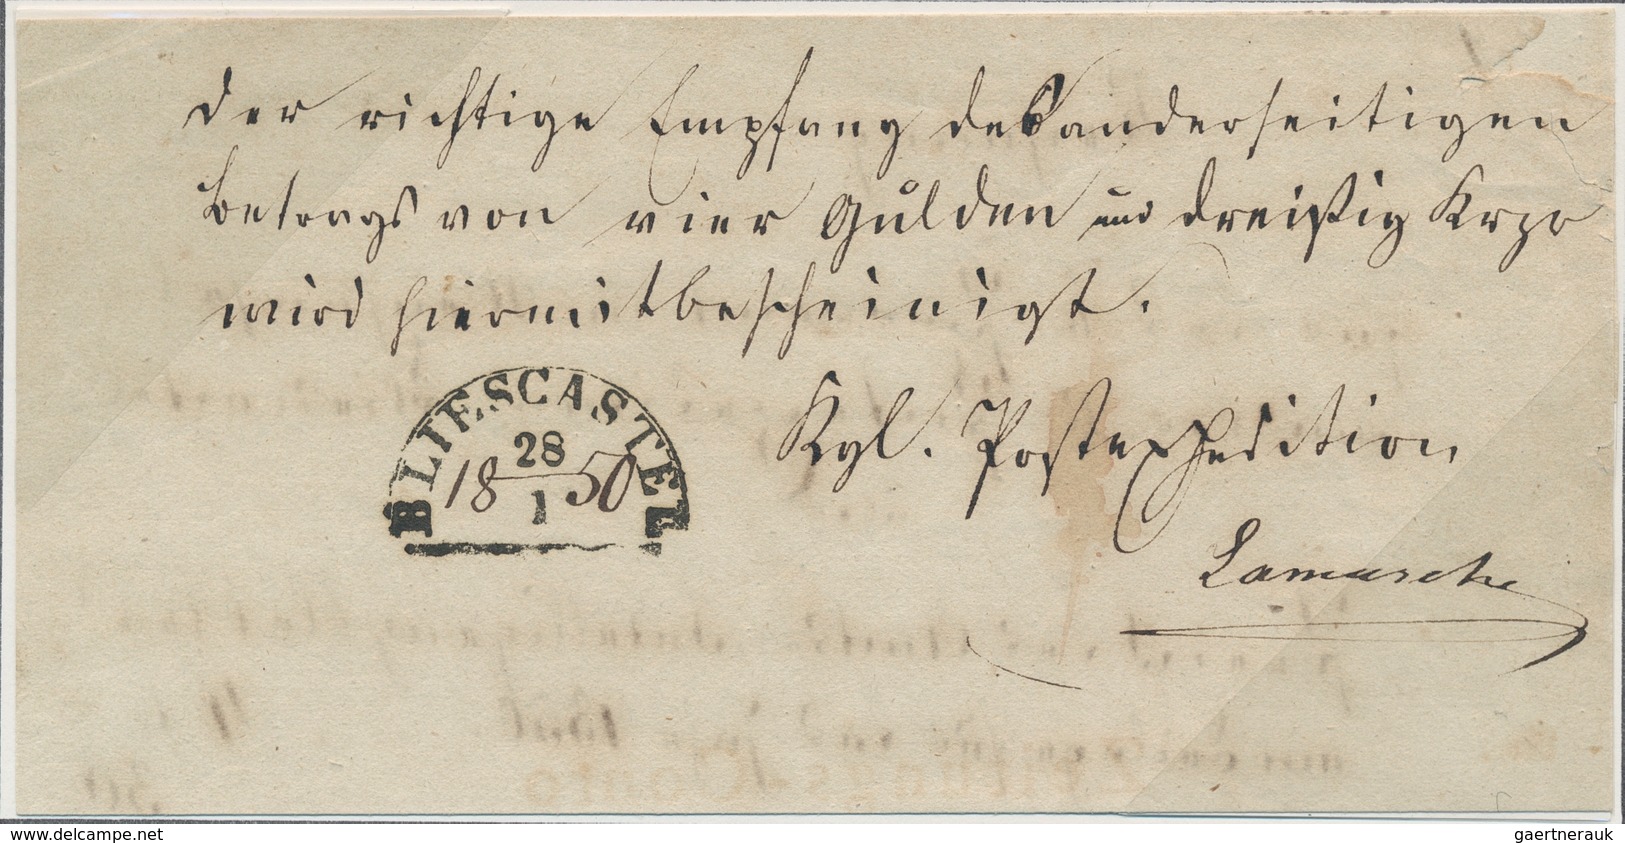 Der richtige Empfang des anderseitigen
Betrags von vier Gulden und dreißig Krzr
wird hiermit bescheinigt.
BLIESCASTEL
28
18 50
1
Kgl. Postexpedition
Lamarche
delcampe.net
gaertnerauk